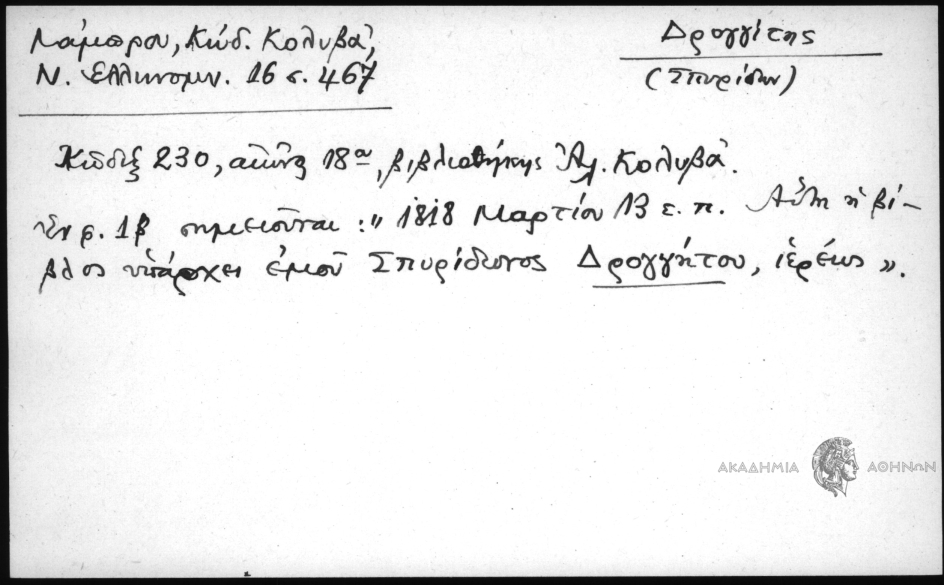 Λάμπρου, Κώδ. Κολυβᾶ,
Ν. Ἑλληνομν. 16 σ. 467
Δρογγίτης
(Σπυρίδων)
Κῶδιξ 230, αἰῶνος 18ου, βιβλιοθήκης Ἀλ. Κολυβᾶ.
Ἐν φ. 1β σημειοῦται : " 1818 Μαρτίου 13 ε. π. Αὕτη ἡ βί-
βλος ὑπάρχει ἐμοῦ Σπυρίδωνος Δρογγήτου, ἱερέως ».
ΑΚΑΔΗΜΙΑ ΑΘΗΝΩΝ